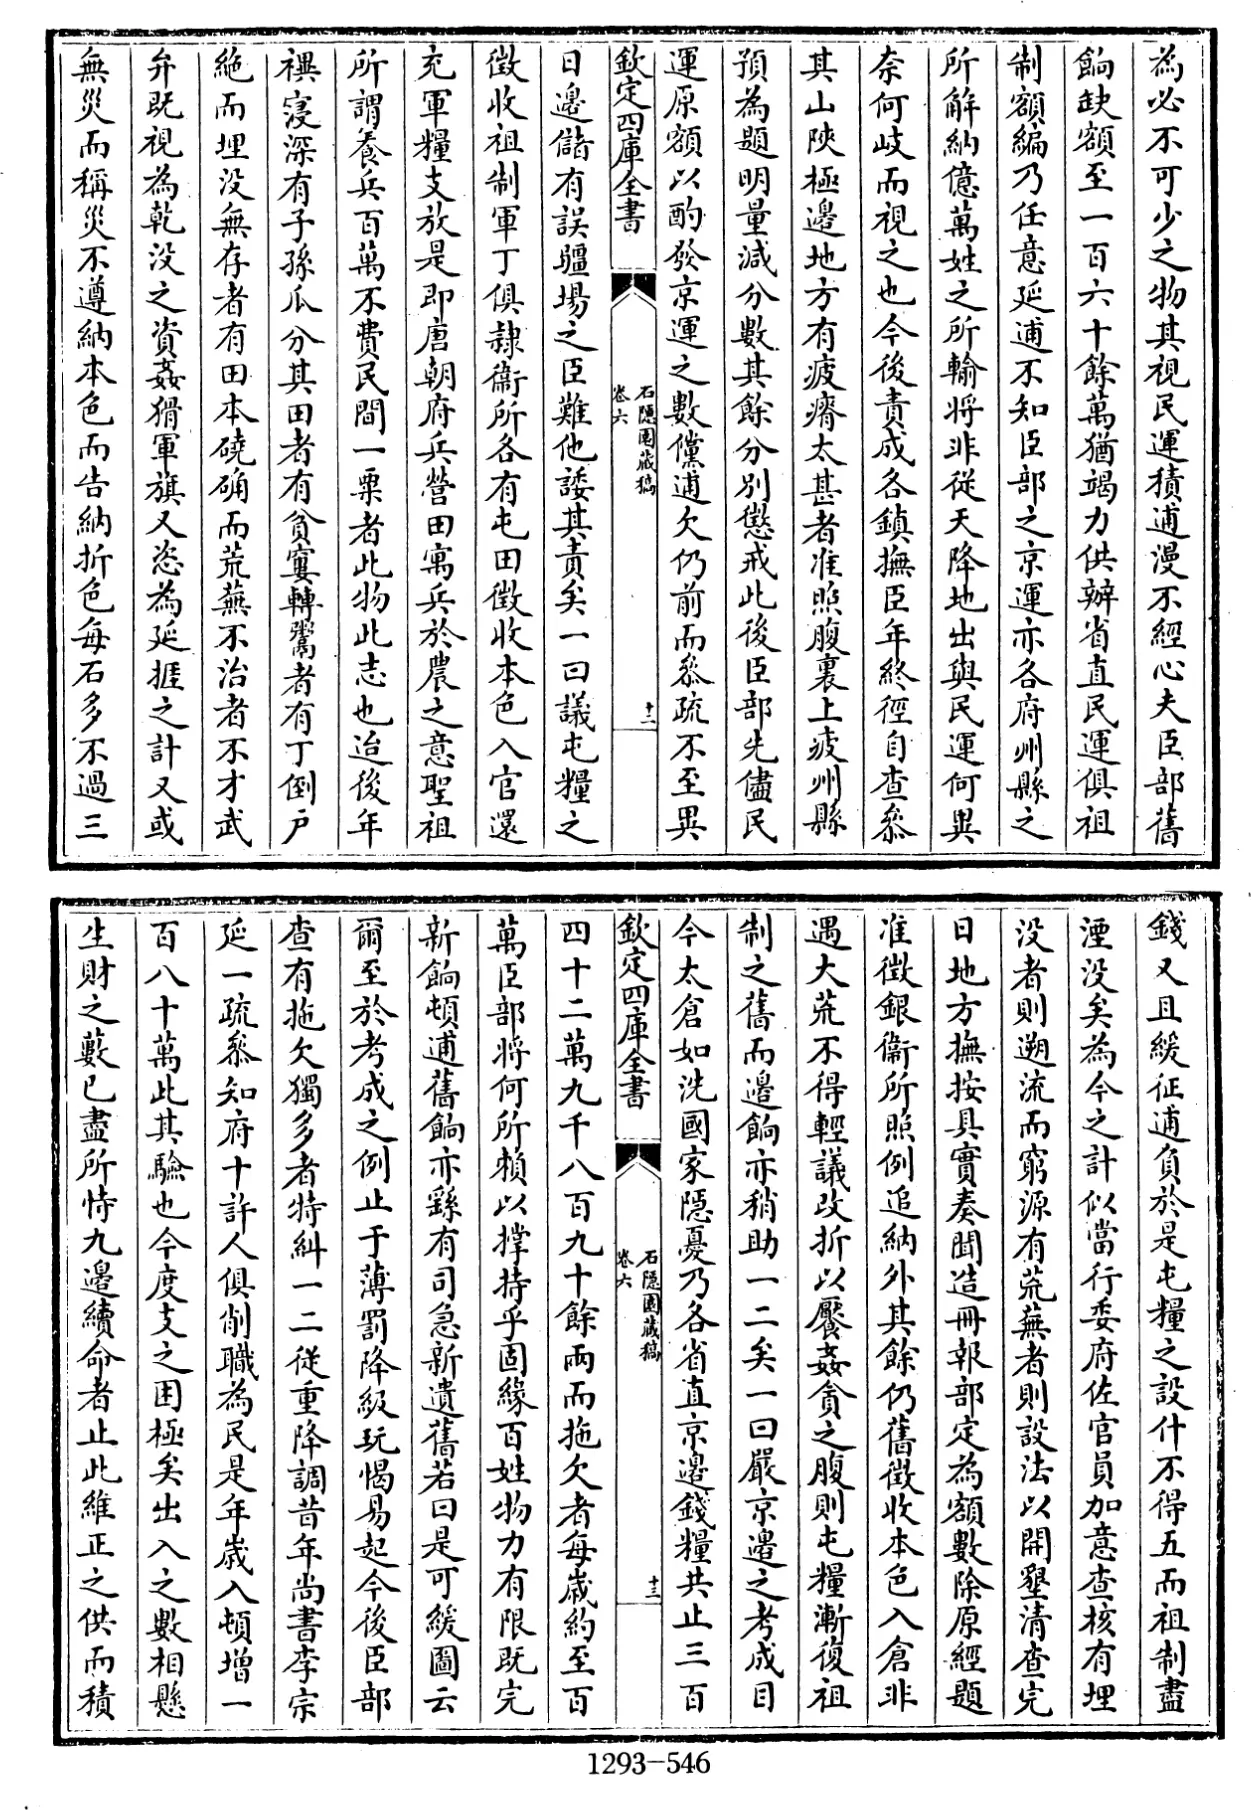 為必不可少之物其視民運積逋漫不經心夫臣部舊
餉缺額至一百六十餘萬猶竭力供辦省直民運俱祖
制額編乃任意延逋不知臣部之京運亦各府州縣之
所解納億萬姓之所輸將非從天降地出與民運何異
奈何歧而視之也今後責成各鎮撫臣年終徑自查叅
其山陝極邊地方有疲瘠太甚者准照腹裏上疲州縣
預為題明量減分數其餘分別懲戒此後臣部先儘民
運原額以酌發京運之數儻逋欠仍前而叅疏不至異
欽定四庫全書
石隱園藏稿
卷六
十二
日邊儲有誤疆場之臣難他諉其責矣一曰議屯糧之
徵收祖制軍丁俱隷衞所各有屯田徵收本色入官還
充軍糧支放是即唐朝府兵營田寓兵於農之意聖祖
所謂養兵百萬不費民間一粟者此物此志也迨後年
禩寖深有子孫瓜分其田者有貧窶轉鬻者有丁倒户
絶而埋没無存者有田本磽确而荒蕪不治者不才武
弁既視為乾没之資姦猾軍旗又恣為延捱之計又或
無災而稱災不遵納本色而告納折色每石多不過三
錢又且緩征逋負於是屯糧之設什不得五而祖制盡
湮没矣為今之計似當行委府佐官員加意查核有埋
没者則遡流而窮源有荒蕪者則設法以開墾清查完
日地方撫按具實奏聞造冊報部定為額數除原經題
准徵銀衞所照例追納外其餘仍舊徵收本色入倉非
遇大荒不得輕議改折以饜姦貪之腹則屯糧漸復祖
制之舊而邊餉亦稍助一二矣一曰嚴京邊之考成目
今太倉如洗國家隱憂乃各省直京邊錢糧共止三百
欽定四庫全書
石隱園藏稿
卷六
十三
四十二萬九千八百九十餘兩而拖欠者每嵗約至百
萬臣部將何所賴以撑持乎固緣百姓物力有限既完
新餉頓逋舊餉亦繇有司急新遺舊若曰是可緩圖云
爾至於考成之例止于薄罰降級玩愒易起今後臣部
查有拖欠獨多者特糾一二從重降調昔年尚書李宗
延一疏叅知府十許人俱削職為民是年嵗入頓增一
百八十萬此其驗也今度支之困極矣出入之數相懸
生財之藪已盡所恃九邊續命者止此維正之供而積
1293-546